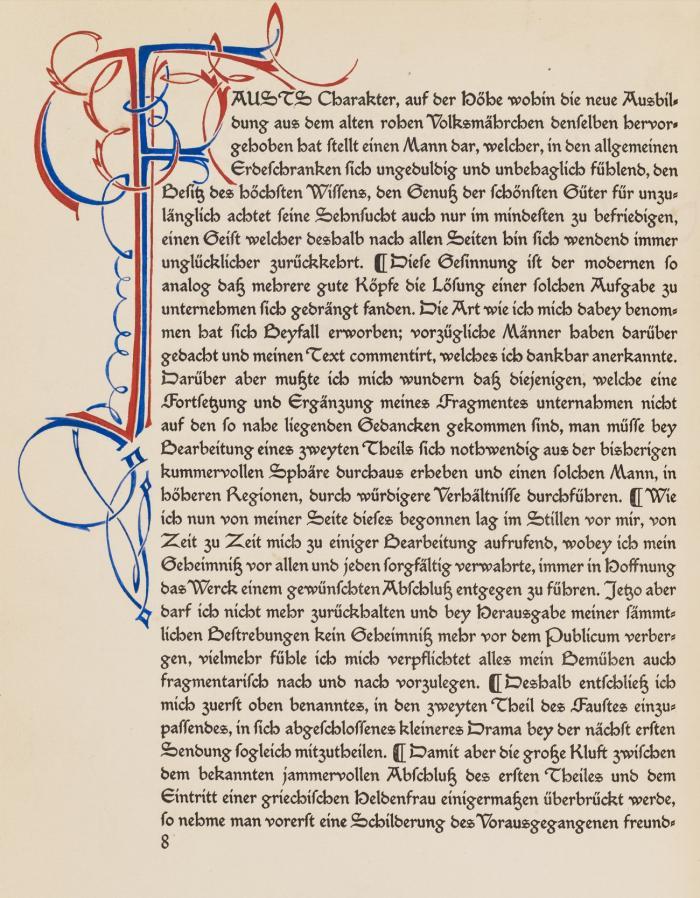 FAUSTS Charakter, auf der Höhe wohin die neue Ausbil-
dung aus dem alten rohen Volksmährchen denſelben hervor-
gehoben hat ſtellt einen Mann dar, welcher, in den allgemeinen
Erdeſchranken ſich ungeduldig und unbehaglich fühlend, den
Beſitz des höchſten Wiſſens, den Genuß der ſchönſten Güter für unzu-
länglich achtet ſeine Sehnſucht auch nur im mindeſten zu befriedigen,
einen Geiſt welcher deshalb nach allen Seiten hin ſich wendend immer
unglücklicher zurückkehrt. ¶ Dieſe Geſinnung iſt der modernen ſo
analog daß mehrere gute Köpfe die Löſung einer ſolchen Aufgabe zu
unternehmen ſich gedrängt fanden. Die Art wie ich mich dabey benom-
men hat ſich Beyfall erworben; vorzügliche Männer haben darüber
gedacht und meinen Text commentirt, welches ich dankbar anerkannte.
Darüber aber mußte ich mich wundern daß diejenigen, welche eine
Fortſetzung und Ergänzung meines Fragmentes unternahmen nicht
auf den ſo nahe liegenden Gedancken gekommen ſind, man müſſe bey
Bearbeitung eines zweyten Theils ſich nothwendig aus der bisherigen
kummervollen Sphäre durchaus erheben und einen ſolchen Mann, in
höheren Regionen, durch würdigere Verhältniſſe durchführen. ¶ Wie
ich nun von meiner Seite dieſes begonnen lag im Stillen vor mir, von
Zeit zu Zeit mich zu einiger Bearbeitung aufrufend, wobey ich mein
Geheimniß vor allen und jeden ſorgfältig verwahrte, immer in Hoffnung
das Werck einem gewünſchten Abſchluß entgegen zu führen. Jetzo aber
darf ich nicht mehr zurückhalten und bey Herausgabe meiner ſämmt-
lichen Beſtrebungen kein Geheimniß mehr vor dem Publicum verber-
gen, vielmehr fühle ich mich verpflichtet alles mein Bemühen auch
fragmentariſch nach und nach vorzulegen. ¶ Deshalb entſchließ ich
mich zuerſt oben benanntes, in den zweyten Theil des Fauſtes einzu-
paſſendes, in ſich abgeſchloſſenes kleineres Drama bey der nächſt erſten
Sendung ſogleich mitzutheilen. ¶ Damit aber die große Kluft zwiſchen
dem bekannten jammervollen Abſchluß des erſten Theiles und dem
Eintritt einer griechiſchen Heldenfrau einigermaßen überbrückt werde,
ſo nehme man vorerſt eine Schilderung des Vorausgegangenen freund-
8